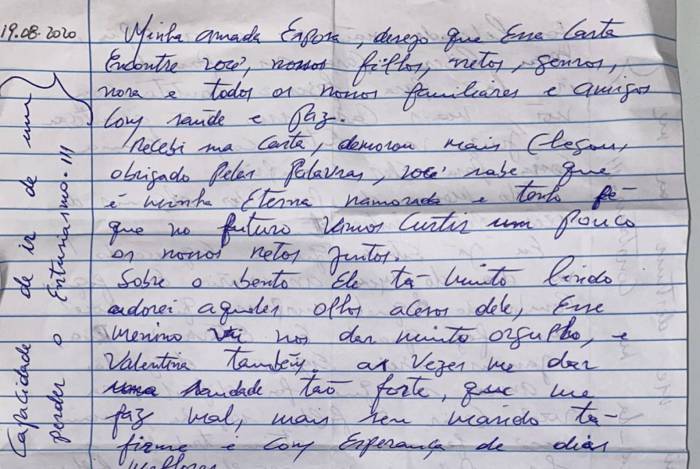 19.08.2020
Minha amada Esposa, desejo que Esse Carta
Encontre você, nossos filhos, netos, genros,
nora e todos os nossos familiares e amigos
Com saúde e Paz.
Recebi sua Carta, demorou mais Chegou,
obrigado Pelas Palavras, você sabe que
é minha Eterna namorada e tenho fé
que no futuro Vamos Curtir um Pouco
os nossos netos juntos.
Sobre o bento Ele tá muito lindo
adorei aqueles olhos acesos dele, Esse
menino vai nos dar muito orgulho, e
Valentina também, as Vezes me dar
uma saudade tão forte, que me
faz mal, mais seu marido tá
firme e Com Esperança de dias
melhores
Capacidade de ir de um
perder o Entusiasmo.!!!